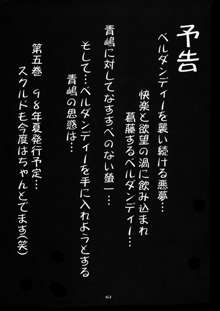 予告
ベルダンディーを襲い続ける悪夢…
快楽と欲望の渦に飲み込まれ
葛藤するベルダンディー
青嶋に対してなすすべのない螢一…
そして…ベルダンディーを手に入れようとする
青嶋の思惑は…
第五巻 98年夏発行予定…
スクルドも今度はちゃんとでます(笑)
61